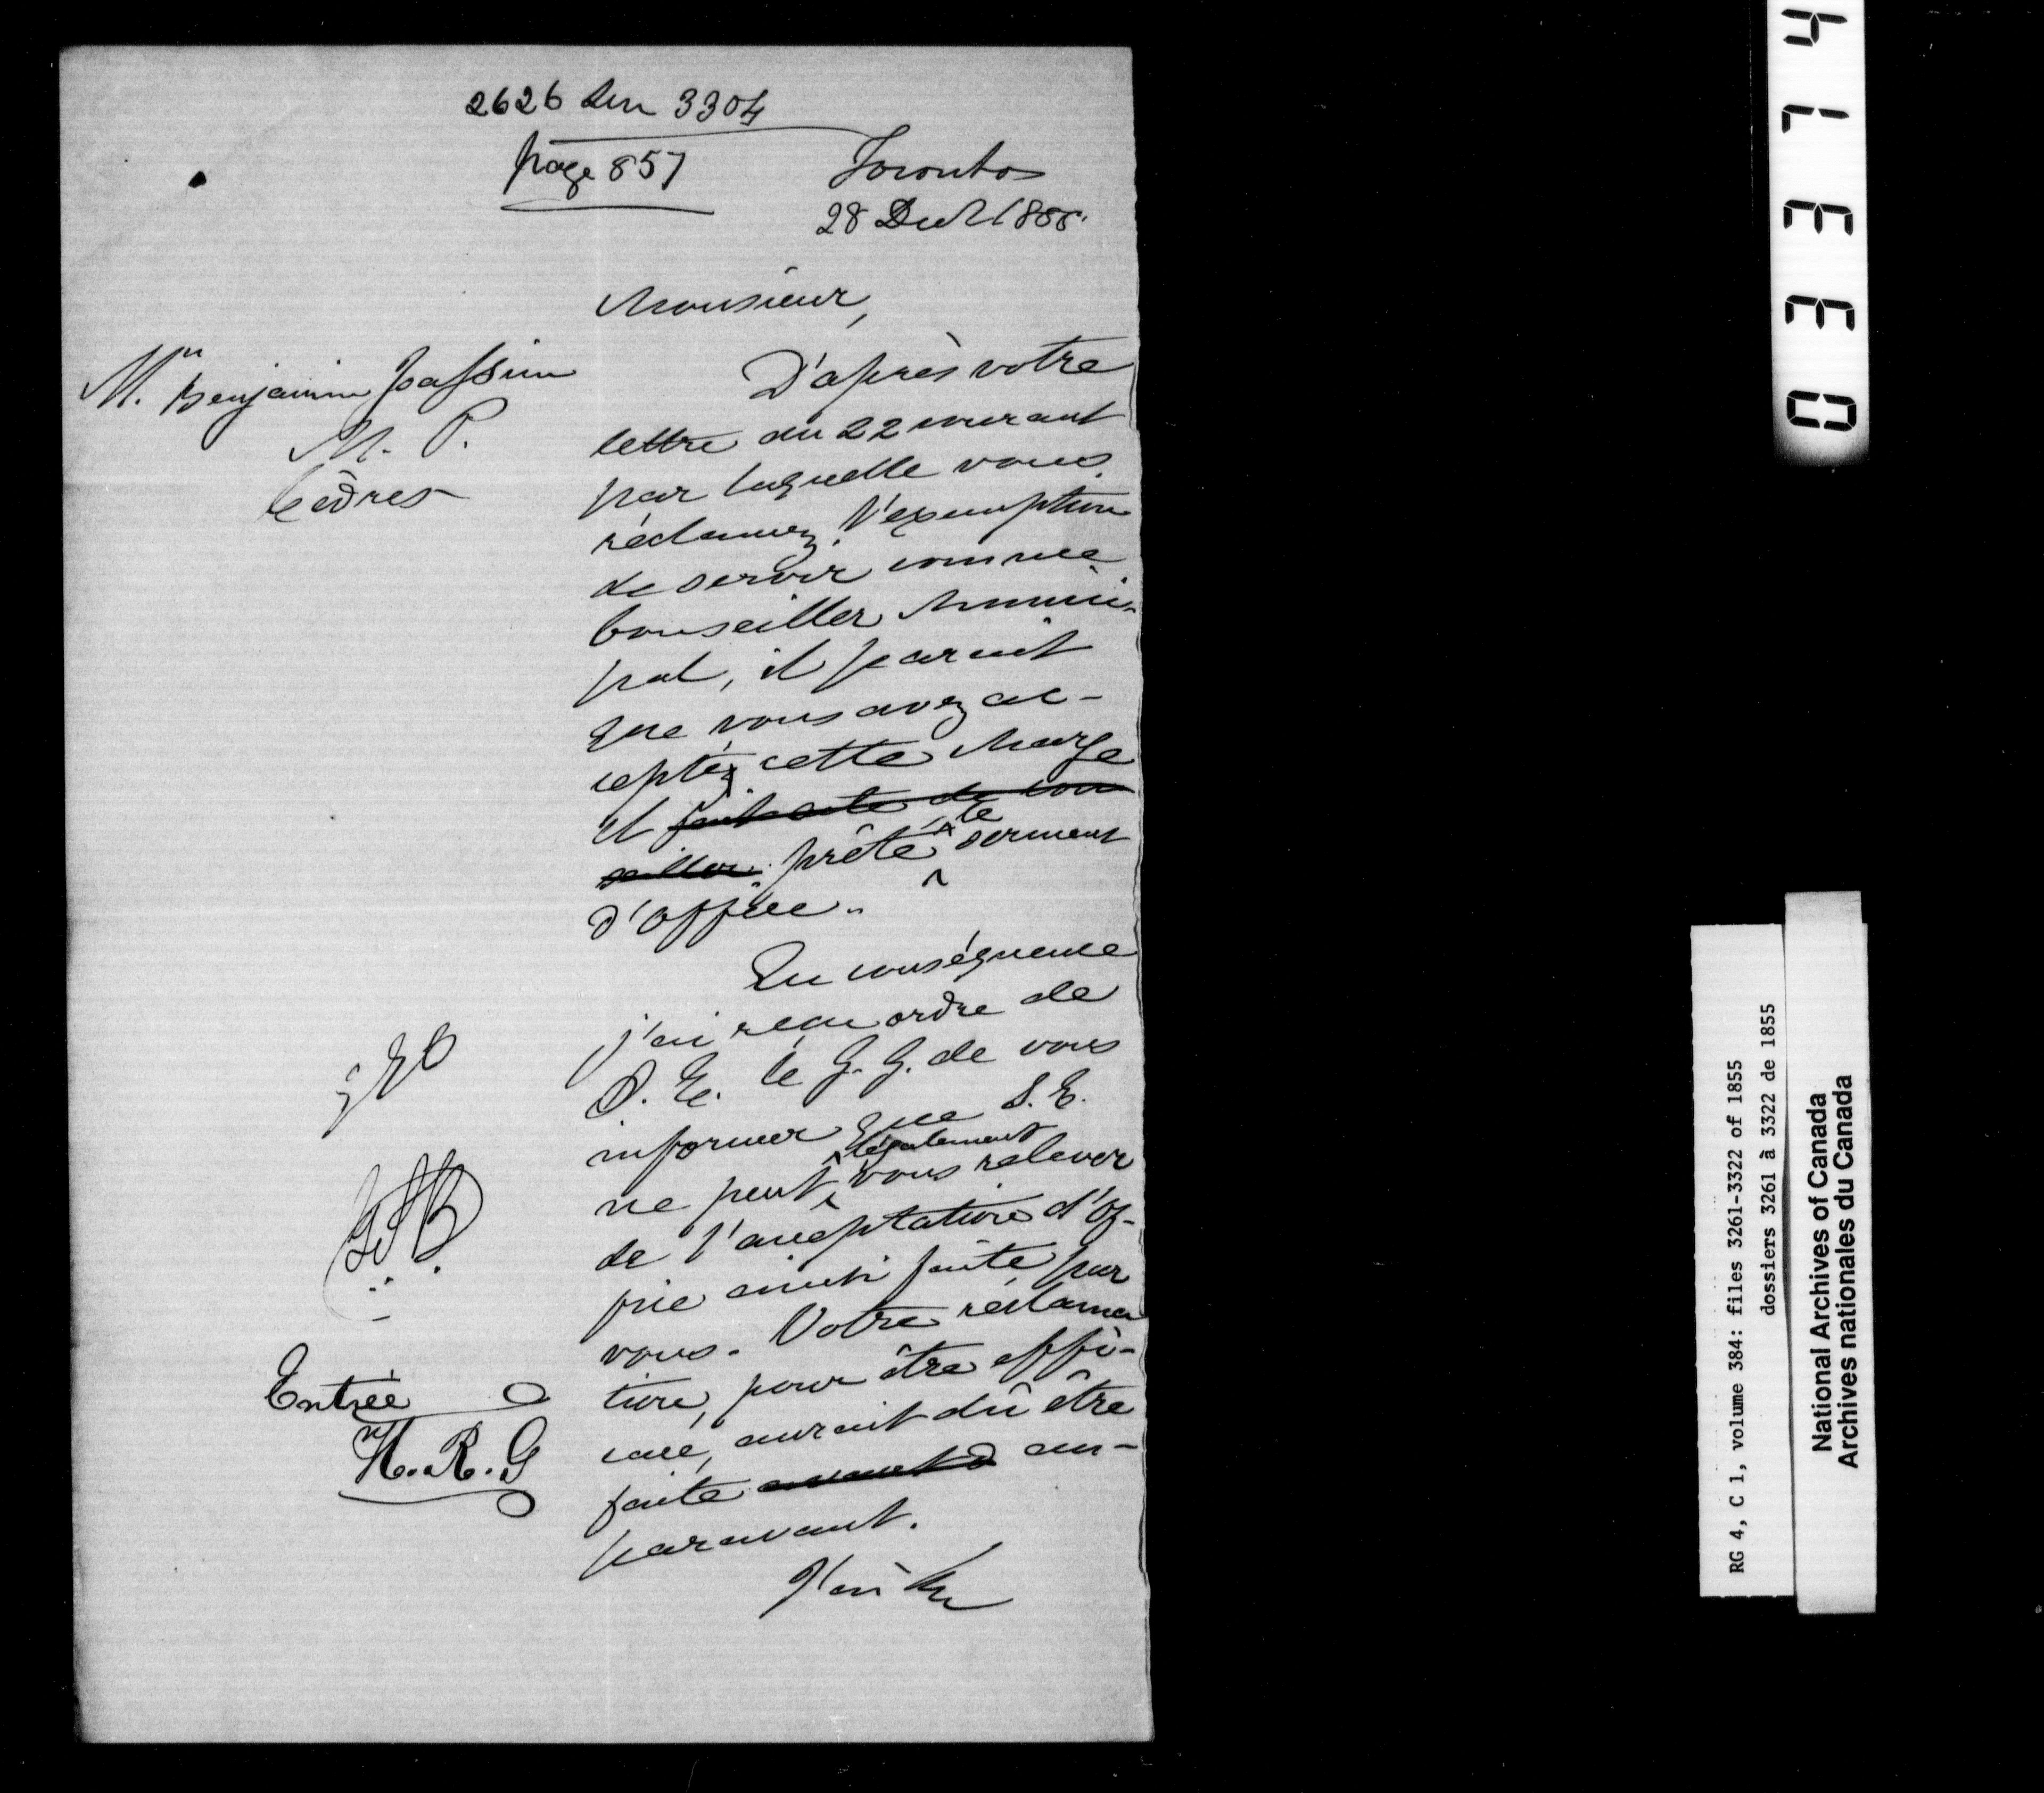 2626 sur 3304
page 857
Toronto
28 Decr 1855.
Monsieur,
Mr. Benjamin
M. P.
Cèdres
D'après votre
lettre du 22 courant
par laquelle vous
réclamez l'exemption
de servir comme
Conseiller Munici-
pal, il parait
que vous avez ac-
cepté cette charge
et fait acte de con
seiller prêté le serment
d'office.
En conséquence
j'ai reçu ordre de
S. E. le G. G. de vous
informer que S. E.
ne peut légalement vous relever
de l'acceptation d'of-
fice ainsi faite par
vous. Votre réclama
tion, pour être effi-
cace, aurait dû être
faite avant au-
paravant.
J'ai
Entrée
H. R. G
03314
RG 4, C 1, volume 384: files 3261-3322 of 1855
dossiers 3261 à 3322 de 1855
National Archives of Canada
Archives nationales du Canada